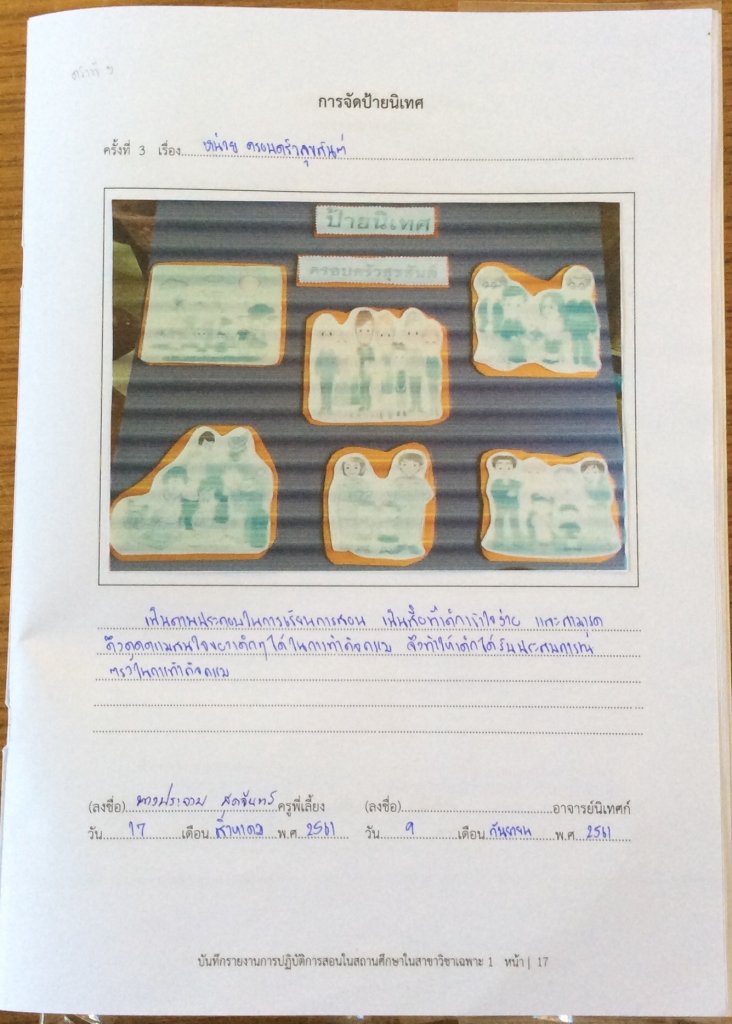 การจัดป้ายนิเทศ
ครั้งที่ 3 เรื่อง หน่วย ครอบครัวสุขสันต์
ป้ายนิเทศ
ครอบครัวสุขสันต์
เป็นภาพประกอบในการเรียนการสอน เป็นสื่อที่เด็กเข้าใจง่าย และสามารถ
ดึงดูดความสนใจของเด็กๆได้ในการทำกิจกรรม จึงทำให้เด็กได้รับประสบการณ์
ตรงในการทำกิจกรรม
(ลงชื่อ) ครูพี่เลี้ยง (ลงชื่อ) อาจารย์นิเทศก์
วัน 17 เดือน สิงหาคม พ.ศ. 2561 วัน 9 เดือน กันยายน พ.ศ. 2561
บันทึกรายงานการปฏิบัติการสอนในสถานศึกษาในสาขาวิชาเฉพาะ 1 หน้า | 17